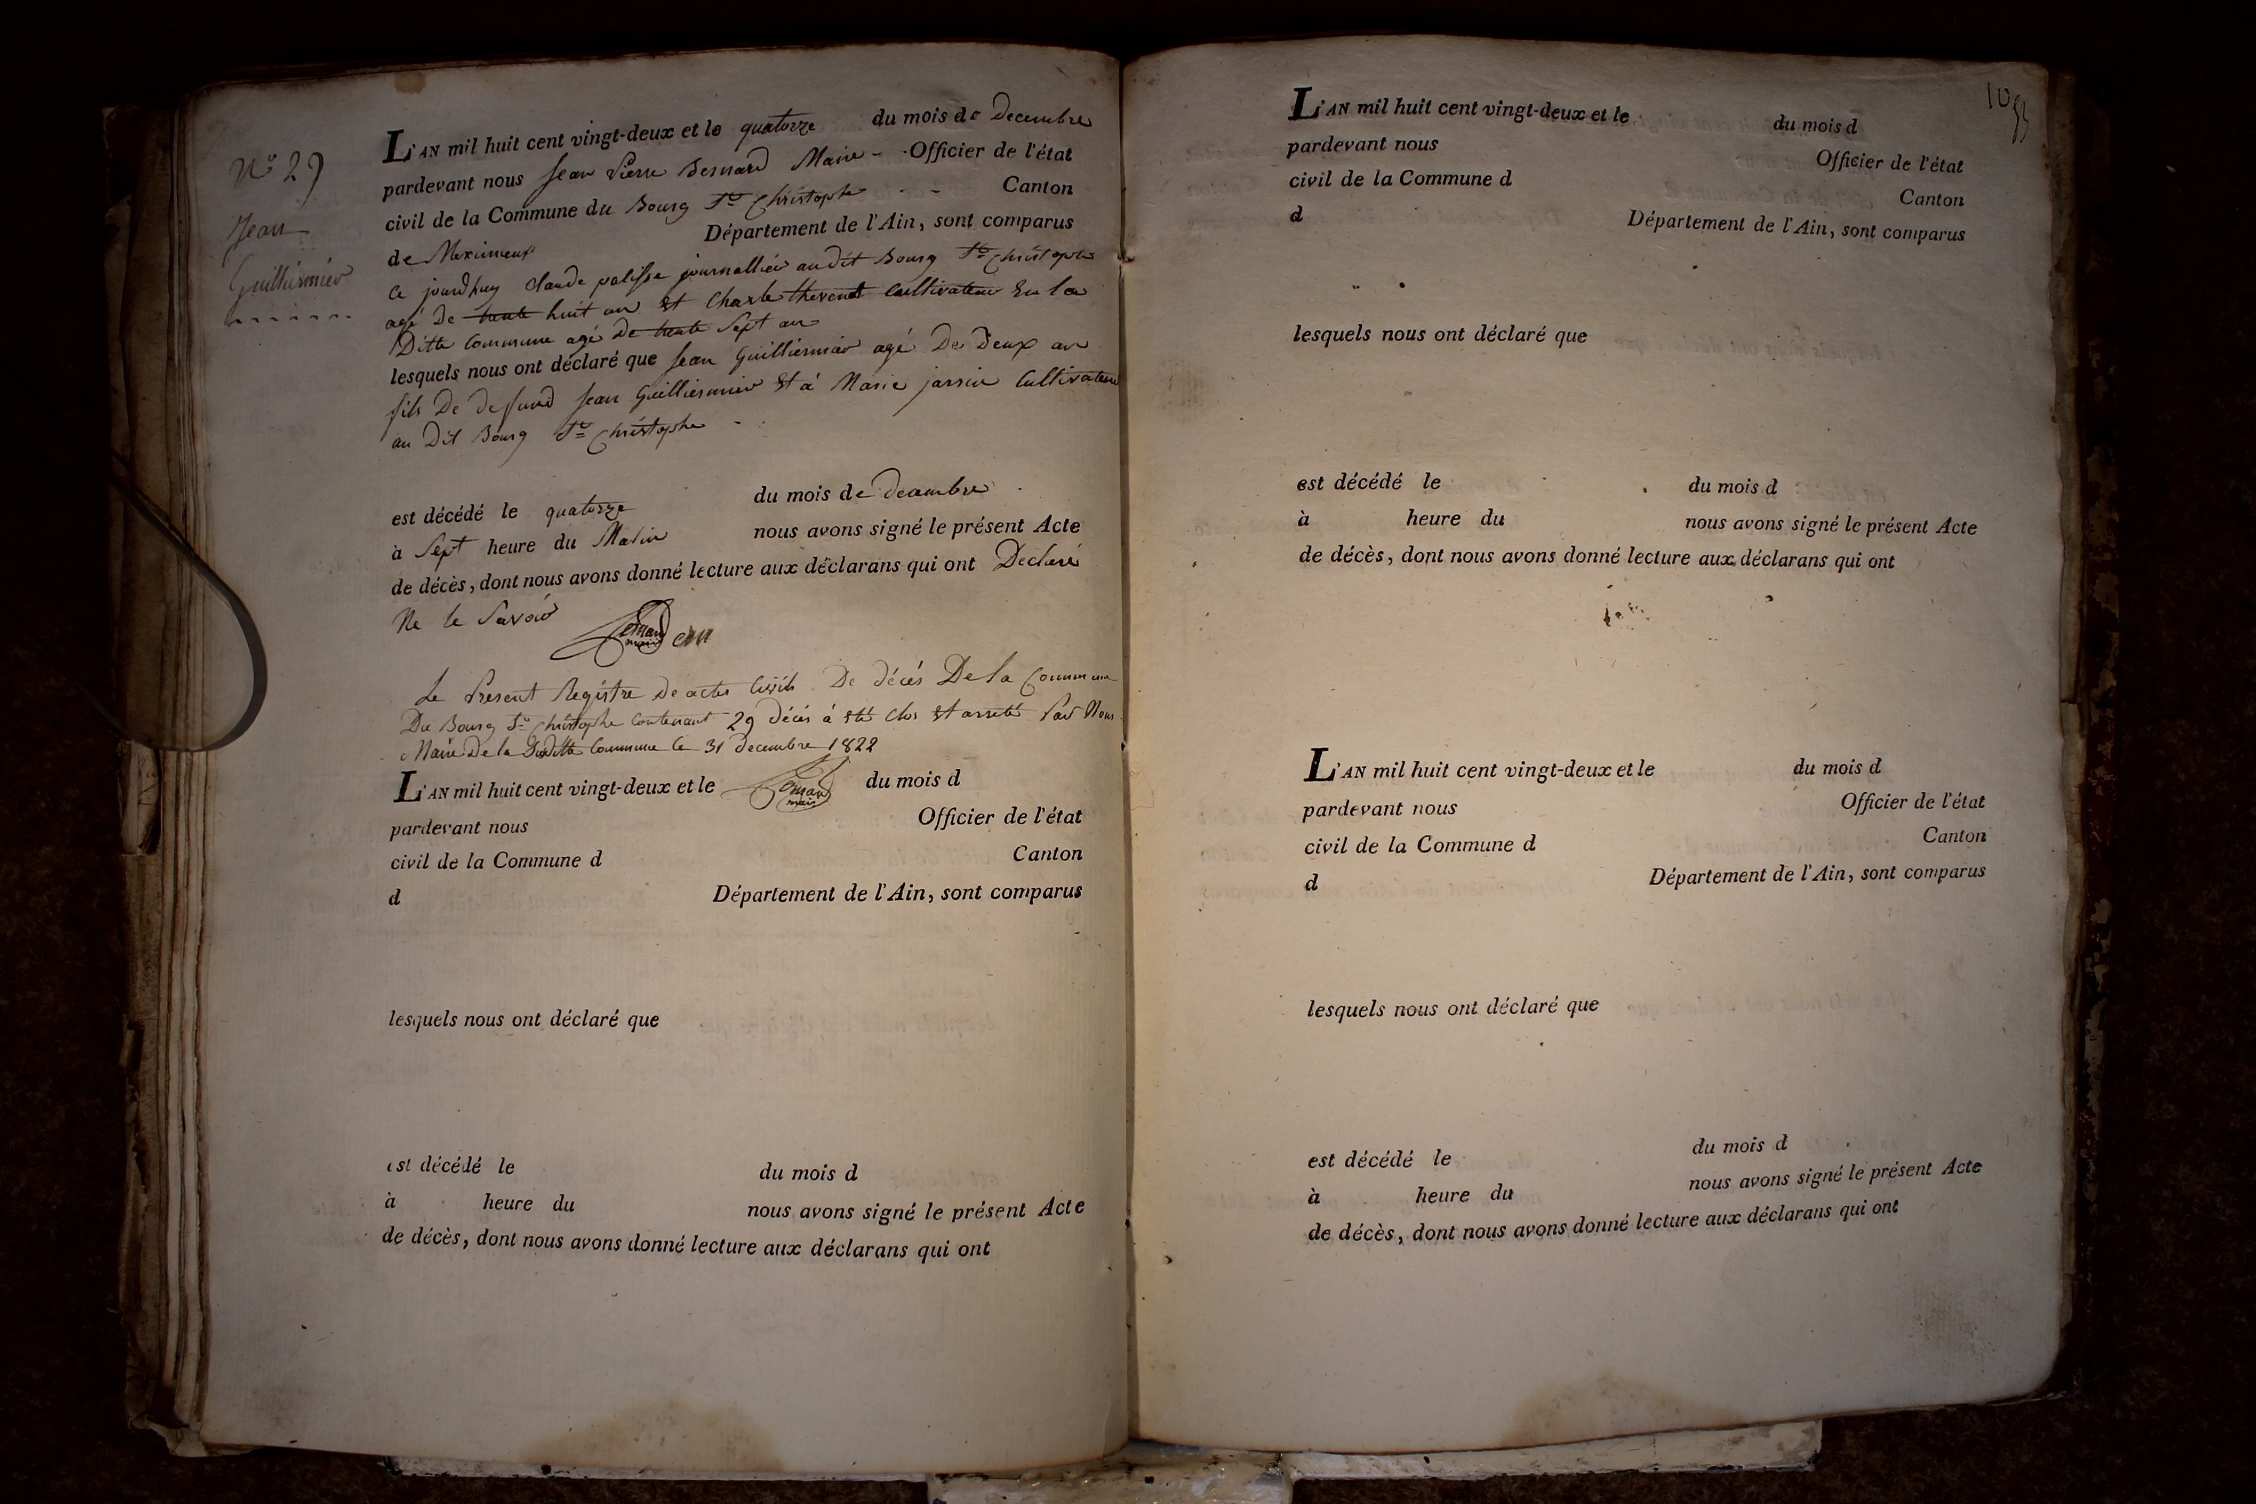 N.º 29
Jean
Guilliermier
L'AN mil huit cent vingt-deux et le quatorze du mois de Decembre
pardevant nous Jean Pierre Bernard Maire Officier de l'état
civil de la Commune du Bourg St Christophe Canton
de Meximieux Département de l'Ain, sont comparus
Ce jourdhuy Claude palisse journallier audit Bourg St Christophe
agé De trente huit an Et Charle thevenet Cultivateur En la
Ditte Commune agé De trente Sept an
lesquels nous ont déclaré que Jean Guilliermier agé De Deux an
fils De Defund Jean Guilliermier Et á Marie jarrin Cultivateur
au Dit Bourg St Christophe
est décédé le quatorze du mois de Decembre
à Sept heure du Matin nous avons signé le présent Acte
de décès, dont nous avons donné lecture aux déclarans qui ont Declaré
Ne le Savoir
maire
Le Present Registre De actes Civils De décés De la Commune
Du Bourg St Christophe Contenant 29 décés á été Clos Et arreté Par Nous
Maire De la Ditte Commune Ce 31 Decembre 1822
L'AN mil huit cent vingt-deux et le du mois d
maire
pardevant nous Officier de l'état
civil de la Commune d Canton
d Département de l'Ain, sont comparus
lesquels nous ont déclaré que
est décédé le du mois d
à heure du nous avons signé le présent Acte
de décès, dont nous avons donné lecture aux déclarans qui ont
10
L'AN mil huit cent vingt-deux et le du mois d
pardevant nous Officier de l'état
civil de la Commune d Canton
d Département de l'Ain, sont comparus
lesquels nous ont déclaré que
est décédé le du mois d
à heure du nous avons signé le présent Acte
de décès, dont nous avons donné lecture aux déclarans qui ont
L'AN mil huit cent vingt-deux et le du mois d
pardevant nous Officier de l'état
civil de la Commune d Canton
d Département de l'Ain, sont comparus
lesquels nous ont déclaré que
est décédé le du mois d
à heure du nous avons signé le présent Acte
de décès, dont nous avons donné lecture aux déclarans qui ont